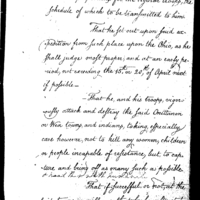 schedule of which to be transmitted to him.
That he set out upon said ex
pedition from such place upon the Ohio, as he
shall judge most proper; and at an early pe-
riod, not exceeding the 15th or 20th of April next
if possible—
That he, and his troops, vigor-
ously attack and destroy the said
or Wea towns, and indians, taking, especially,
care however, not to kill any women, children
or people incapable of resistance, but to cap-
ture and bring off as many such as possible.
That if successful or not, at the